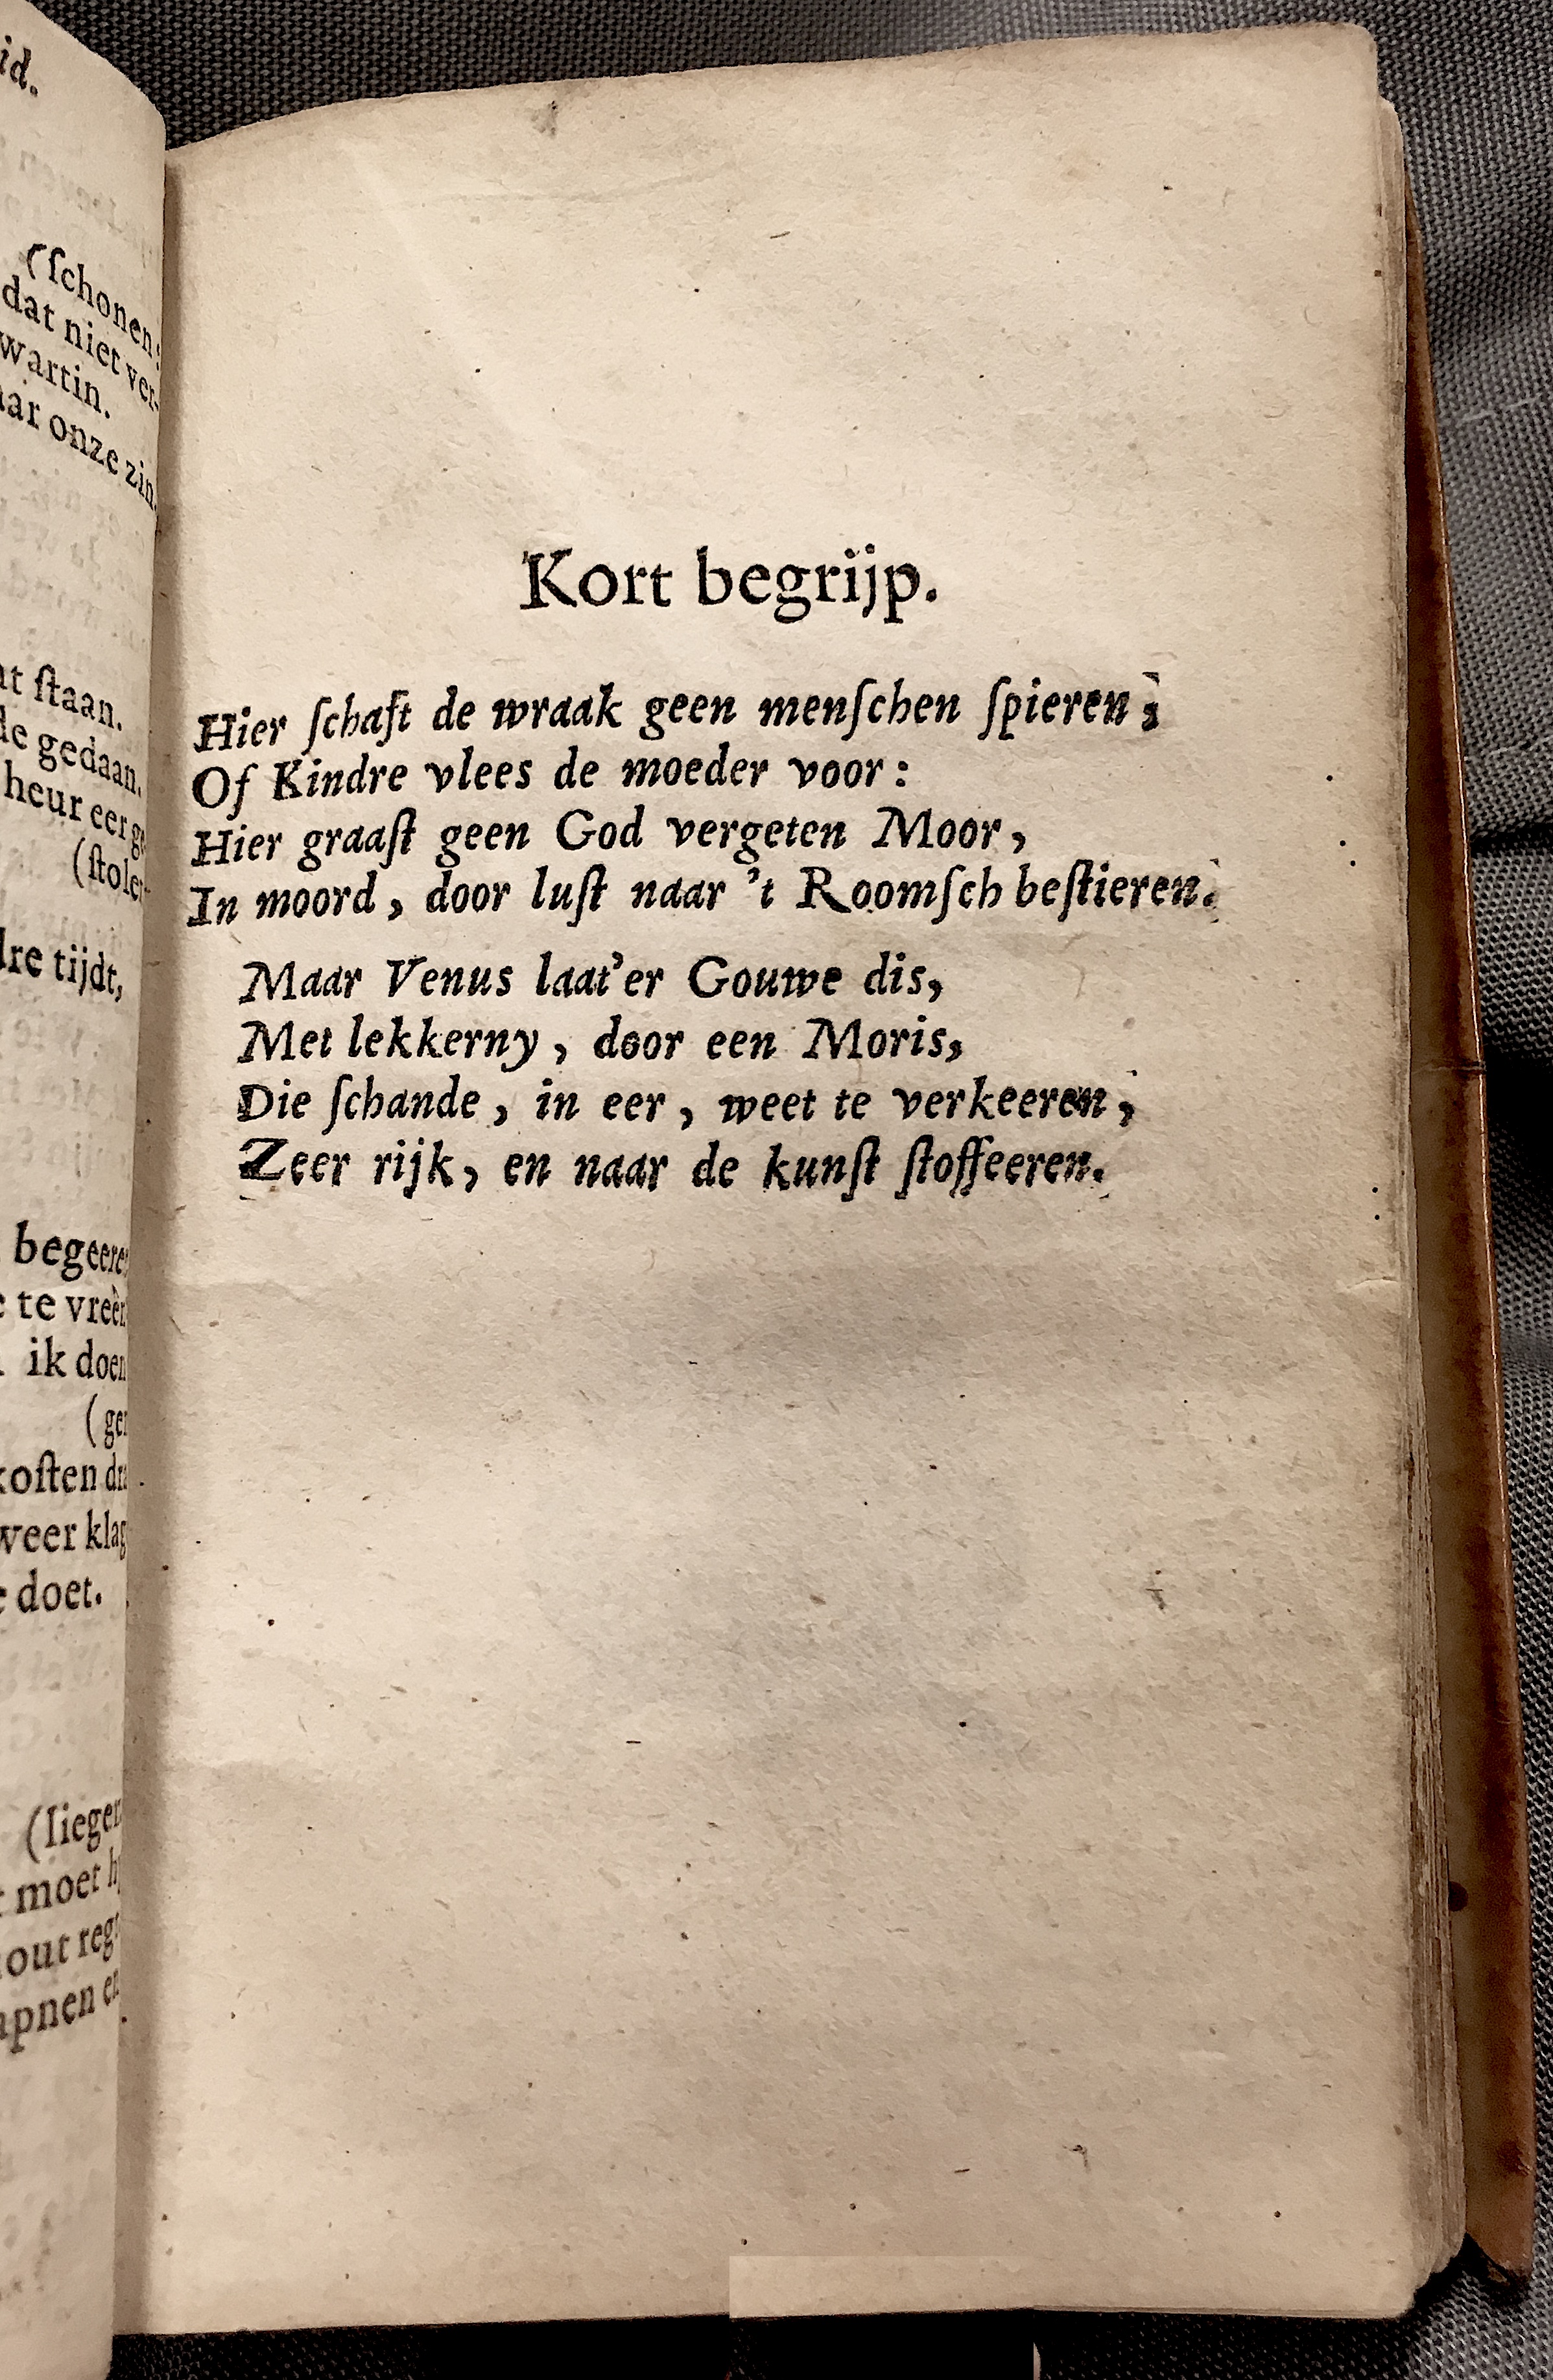 id.
(ſchonen;
dat niet ver-
wartin.
onze zin.
ſtaan.
gedaan.
heur eer
(ſtolen
tijdt,
te
ik doen
(
weer
doet.
moet
Kort begrijp.
Hier ſchaft de wraak geen menſchen ſpieren;
Of Kindre vlees de moeder voor:
Hier graaſt geen God vergeten Moor,
In moord, door luſt naar 't Roomſch beſtieren.
Maar Venus laat'er Gouwe dis,
Met lekkerny, door een Moris,
Die ſchande, in eer, weet te verkeeren,
Zeer rijk, en naar de kunſt ſtoffeeren.